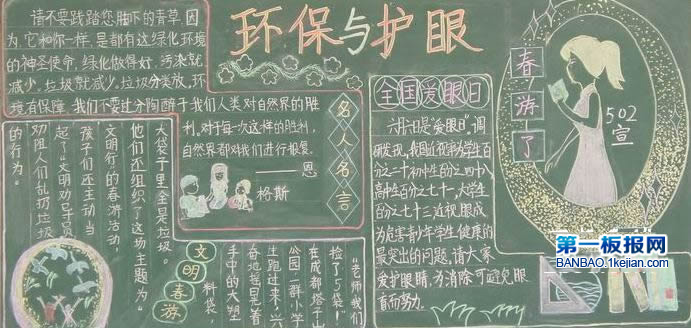 环保与护眼
请不要践踏您脚下的青草，因
为，它和你一样，是都有这绿化环境
的神圣使命，绿化做得好，污染就
减少，垃圾就减少。垃圾分类放，环
境有保障
我们不要过分陶醉于我们人类对自然界的胜
利，对于每一次这样的胜利，
自然界都对我们进行报复。
——恩
格斯
名人名言
全国爱眼日
六月六日是“爱眼日”，调
研发现，我国近视率为小学生百
分之二十，初中生百分之四十八，
高中生百分之七十，大学生
百分之七十三，近视眼成
为危害青少年学生健康的
最突出的问题，请大家
爱护眼睛，为消除可避免眼
盲而努力。
春游了
502
宣
文明春游
“老师我们
捡了5袋！”
在成都塔子山
公园，一群小学
生跑过来，兴
奋地摇晃着
手中的大塑
料袋，
大袋子里全是垃圾。
他们还组织了这场主题为“
文明行”的春游活动，
孩子们还主动当
起了“文明劝导员”
劝阻人们乱扔垃圾
的行为。
第一板报网
BANBAO.1kejian.com